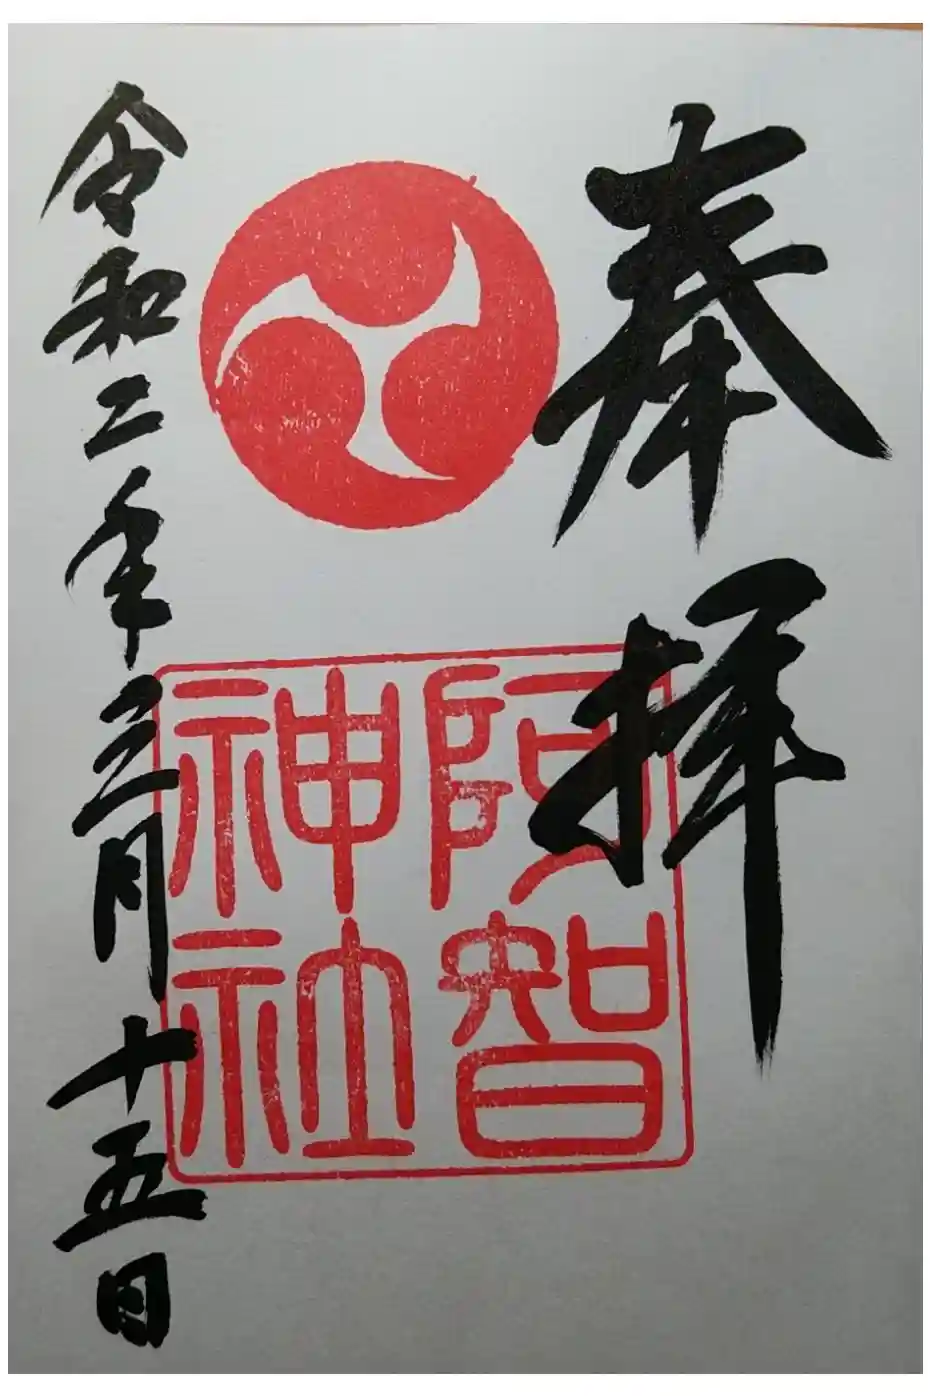 奉拝
阿智
神社
令和二年三月十五日